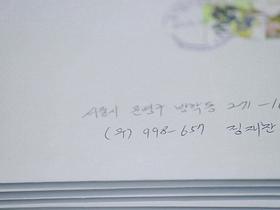 서울시 은평구 방학동 271-1
(우) 998-657 정재찬